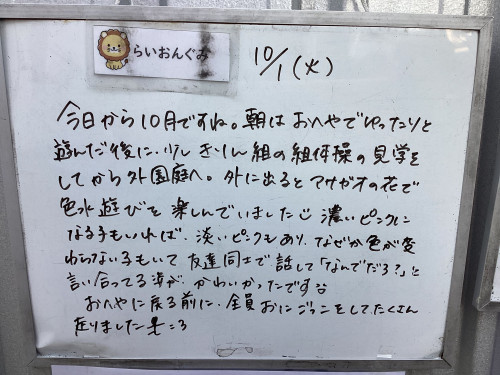 らいおんぐみ
10/1(火)
今日から10月ですね。朝は おへやでゆったりと
遊んだ後に、少し きりん組の組体操の見学を
してから外園庭へ。外に出るとアサガオの花で
色水遊びを楽しんでいました 濃いピンクに
なる子もいれば、淡いピンクもあり、なぜか色が変
わらない子もいて 友達同士で話して「なんでだろ?」と
言い合ってる姿が、かわいかったです
おへやに戻る前に、全員おにごっこをしてたくさん
走りました